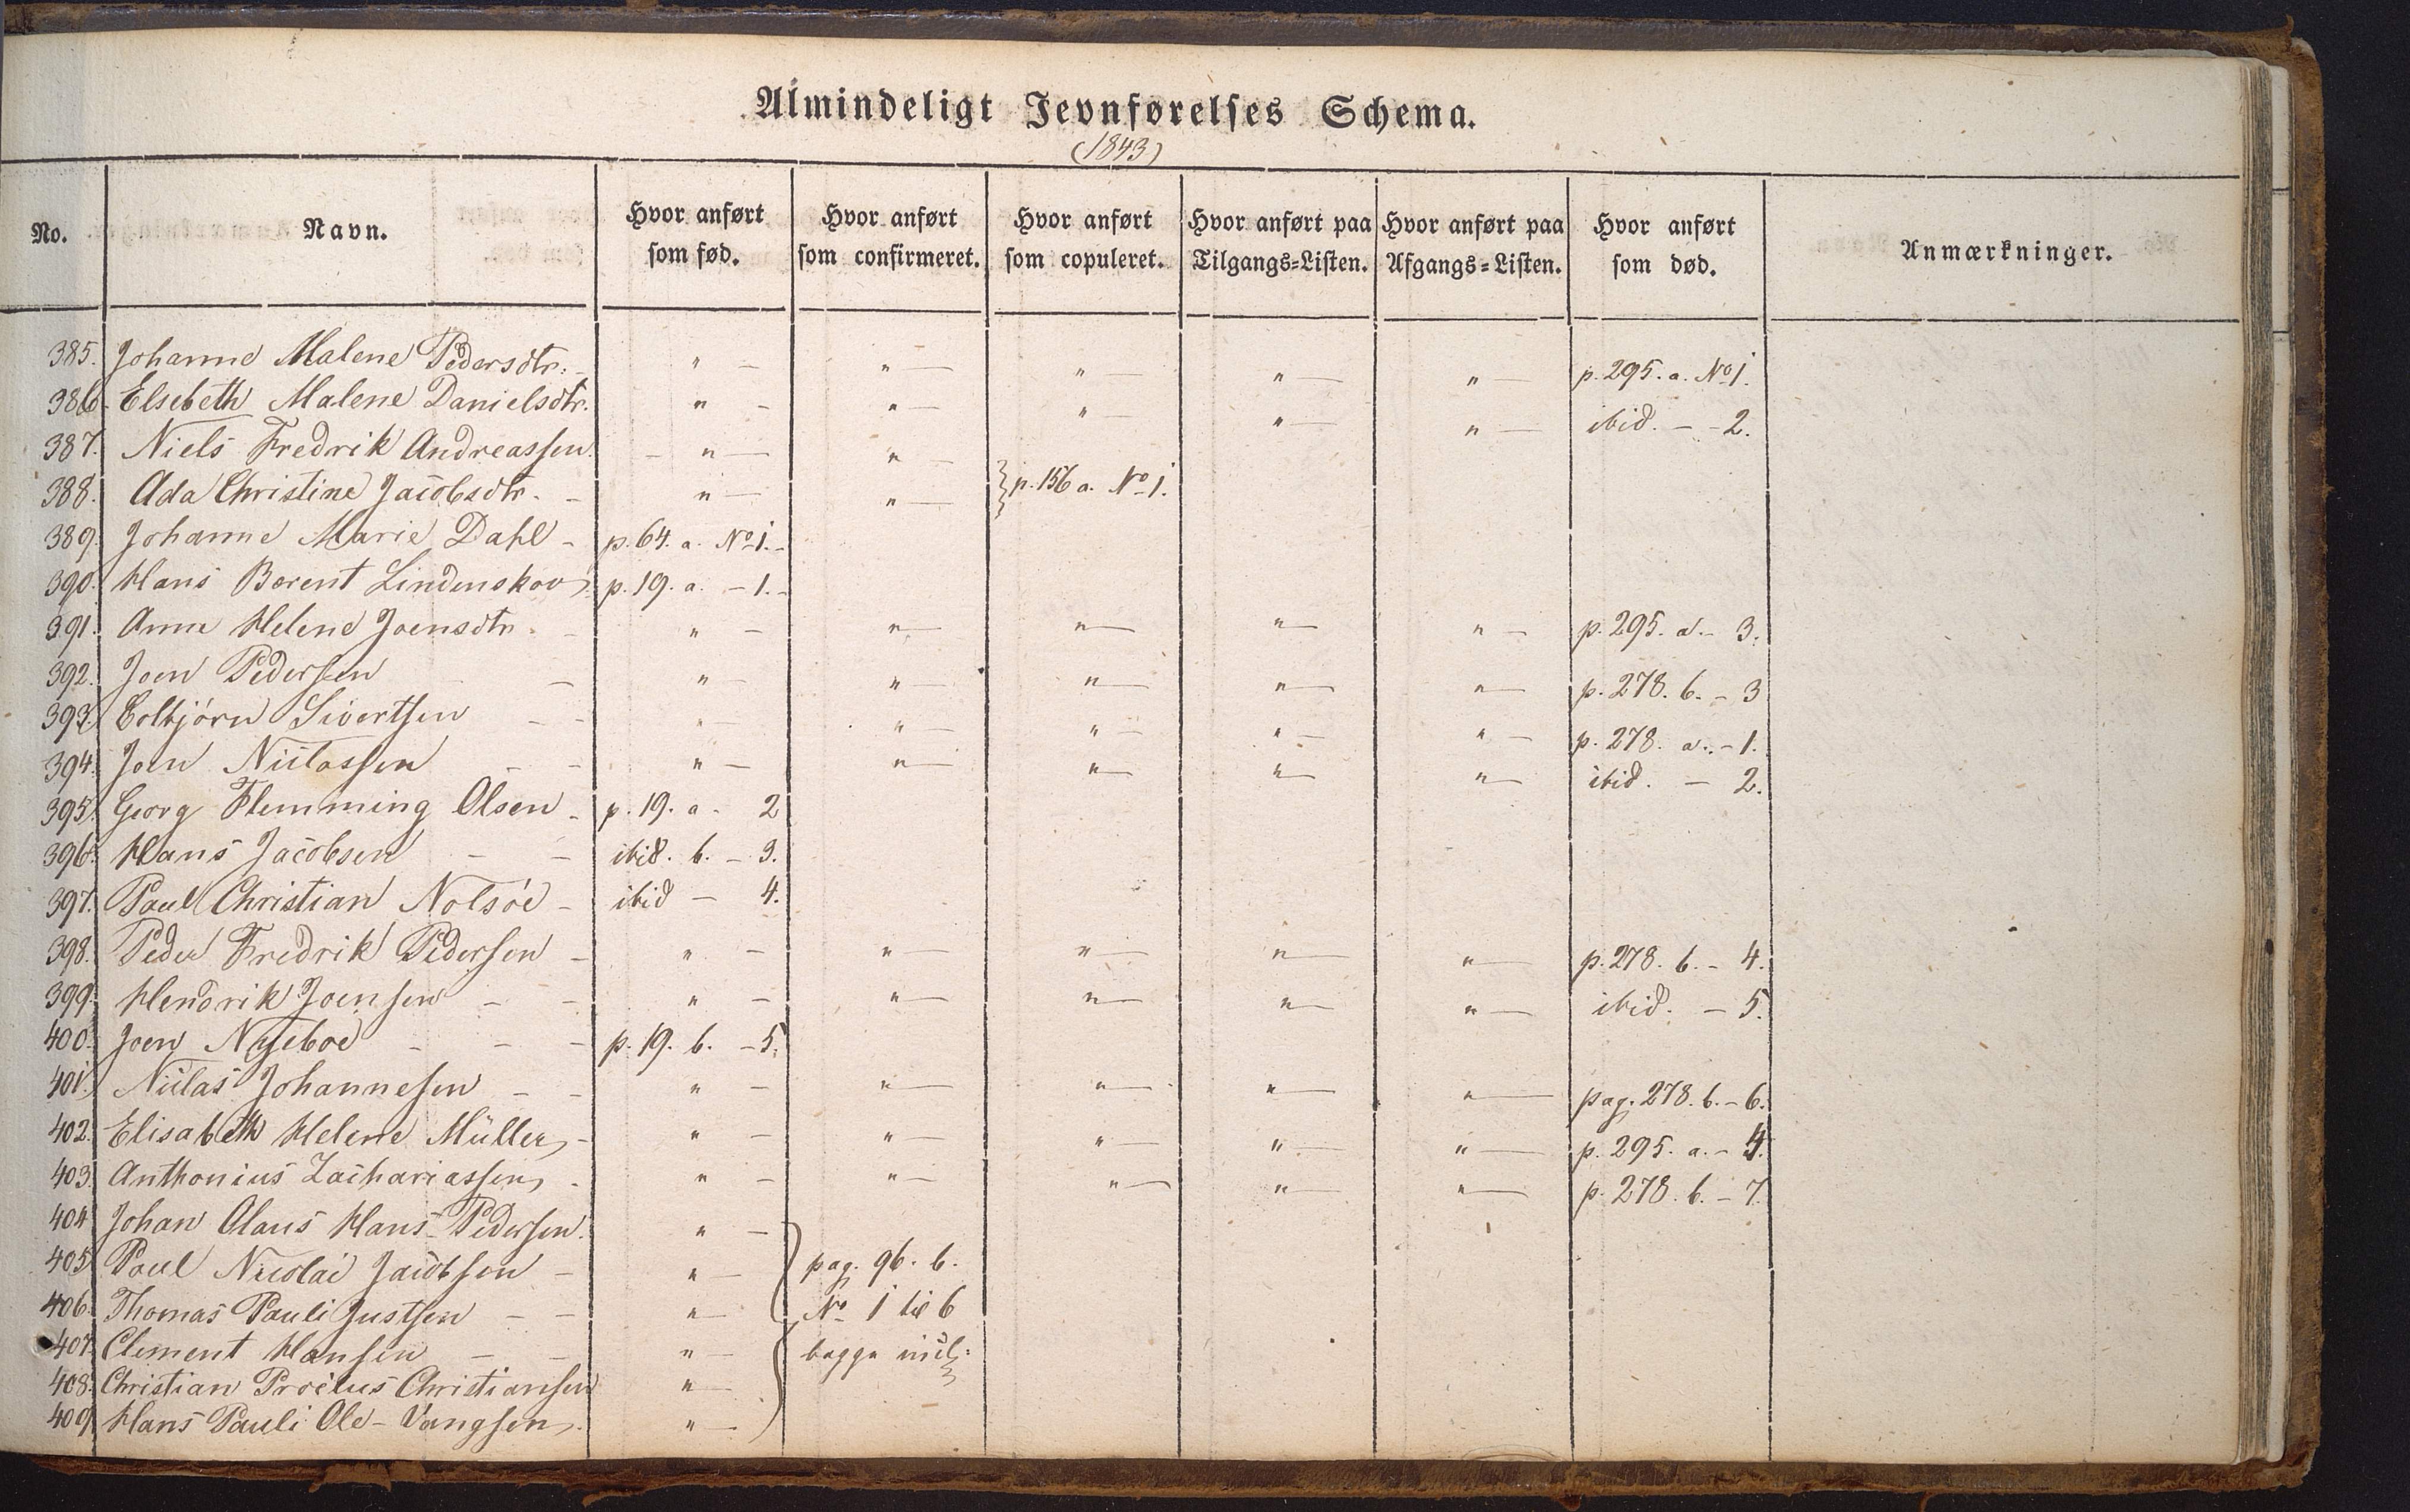 Almindeligt Jevnførelses Schema.
(1843)
No. Navn. Hvor anført som fød. Hvor anført som confirmeret. Hvor anført som copuleret. Hvor anført paa Tilgangs=Listen. Hvor anført paa Afgangs=Listen. Hvor anført som død. Anmærkninger.
385. Johanne Malene Pedersdtr. - " - " — " — " — " — p. 295. a. No 1.
386. Elsebeth Malene Danielsdtr. " - " — " — " — " — ibid. - - 2.
387. Niels Fredrik Andreassen. - " — " — p. 156 a. No 1.
388. Ada Christine Jacobsdtr. - " — " —
389. Johanne Marie Dahl - p. 64. a. No 1. -
390. Hans Berent Lindenskov, p. 19. a. - 1. -
391. Anne Helene Joensdtr. - " - " — " — " — " — p. 295. a. - 3.
392. Joen Pedersen - - " — " — " — " — " — p. 278. b. - 3
393. Colbjórn Sivertsen - - " — " — " — " — " — p. 278. a. - 1.
394. Joen Niclassen - - " — " — " — " — " — ibid. - 2.
395. Georg Flemming Olsen - p. 19. a - 2
396. Hans Jacobsen - - ibid. b. - 3.
397. Paul Christian Nolsóe - ibid - 4.
398. Peder Fredrik Pedersen - " - " — " — " — " — p. 278. b. - 4.
399. Hendrik Joensen - - " - " — " — " — " — ibid. - 5.
400. Joen Nyeboe - - - p. 19. b. - 5.
401. Niclas Johannesen - - " - " — " — " — " — pag. 278. b. - 6.
402. Elisabeth Helene Müller, - " - " — " — " — " — p. 295. a. - 4.
403. Anthonius Zachariassen, - " - " — " — " — " — p. 278. b. - 7.
404 Johan Claus Hans-Pedersen. " -
405 Paul Nicolai Jacobsen - " — pag. 96. b.
406. Thomas Pauli Justsen - - " — No 1 til 6
407. Clement Hansen - - " — begge incl:
408. Christian Procius Christiansen " —
409. Hans Pauli Ole-Vangsen. " —